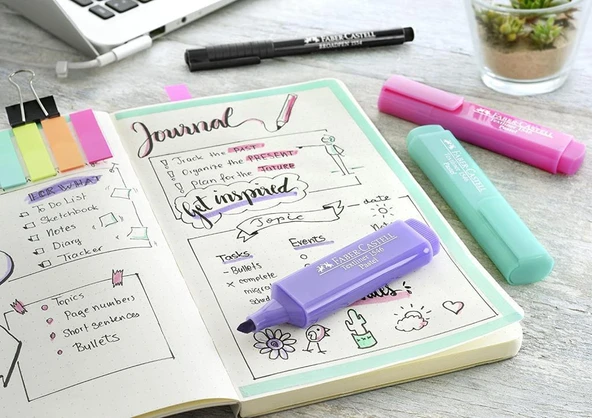 FOR WHAT
To Do List
Sketchbook
Notes
Diary
Tracker
Topics
Page numbers
Short sentences
Bullets
Journal
Track the PAST
Organize the PRESENT
Plan for the future
Get inspired
Topic
date
Tasks
Events
Bullets
× complete
FABER-CASTELL
BROADPEN 1554
FABER-CASTELL
FABER-CASTELL
FABER-CASTELL
Textliner 1546
Pastel